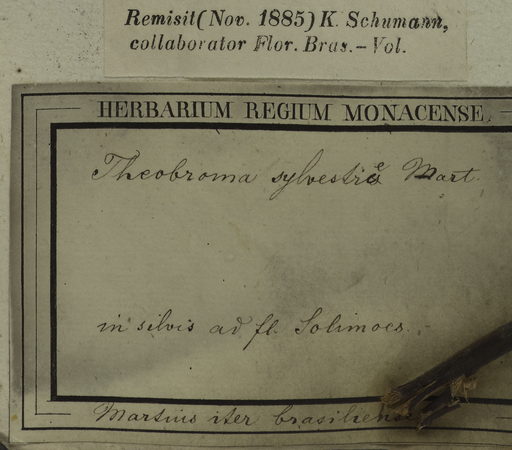 Remisit (Nov. 1885) K. Schumann,
collaborator Flor. Bras. – Vol.
HERBARIUM REGIUM MONACENSE.
Theobroma sylvestre Mart.
in silvis ad fl. Solimoes.
Martius iter brasiliense